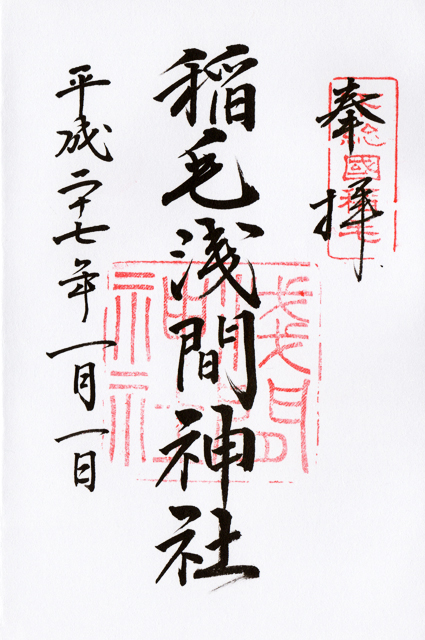 奉拝
下総國稲毛
稲毛浅間神社
浅間神社
平成二十七年一月一日